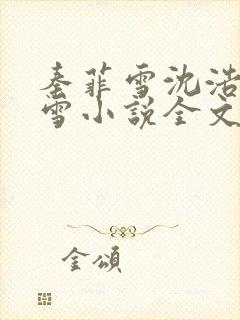 秦菲雪沈浩
雪小説全文
金頌